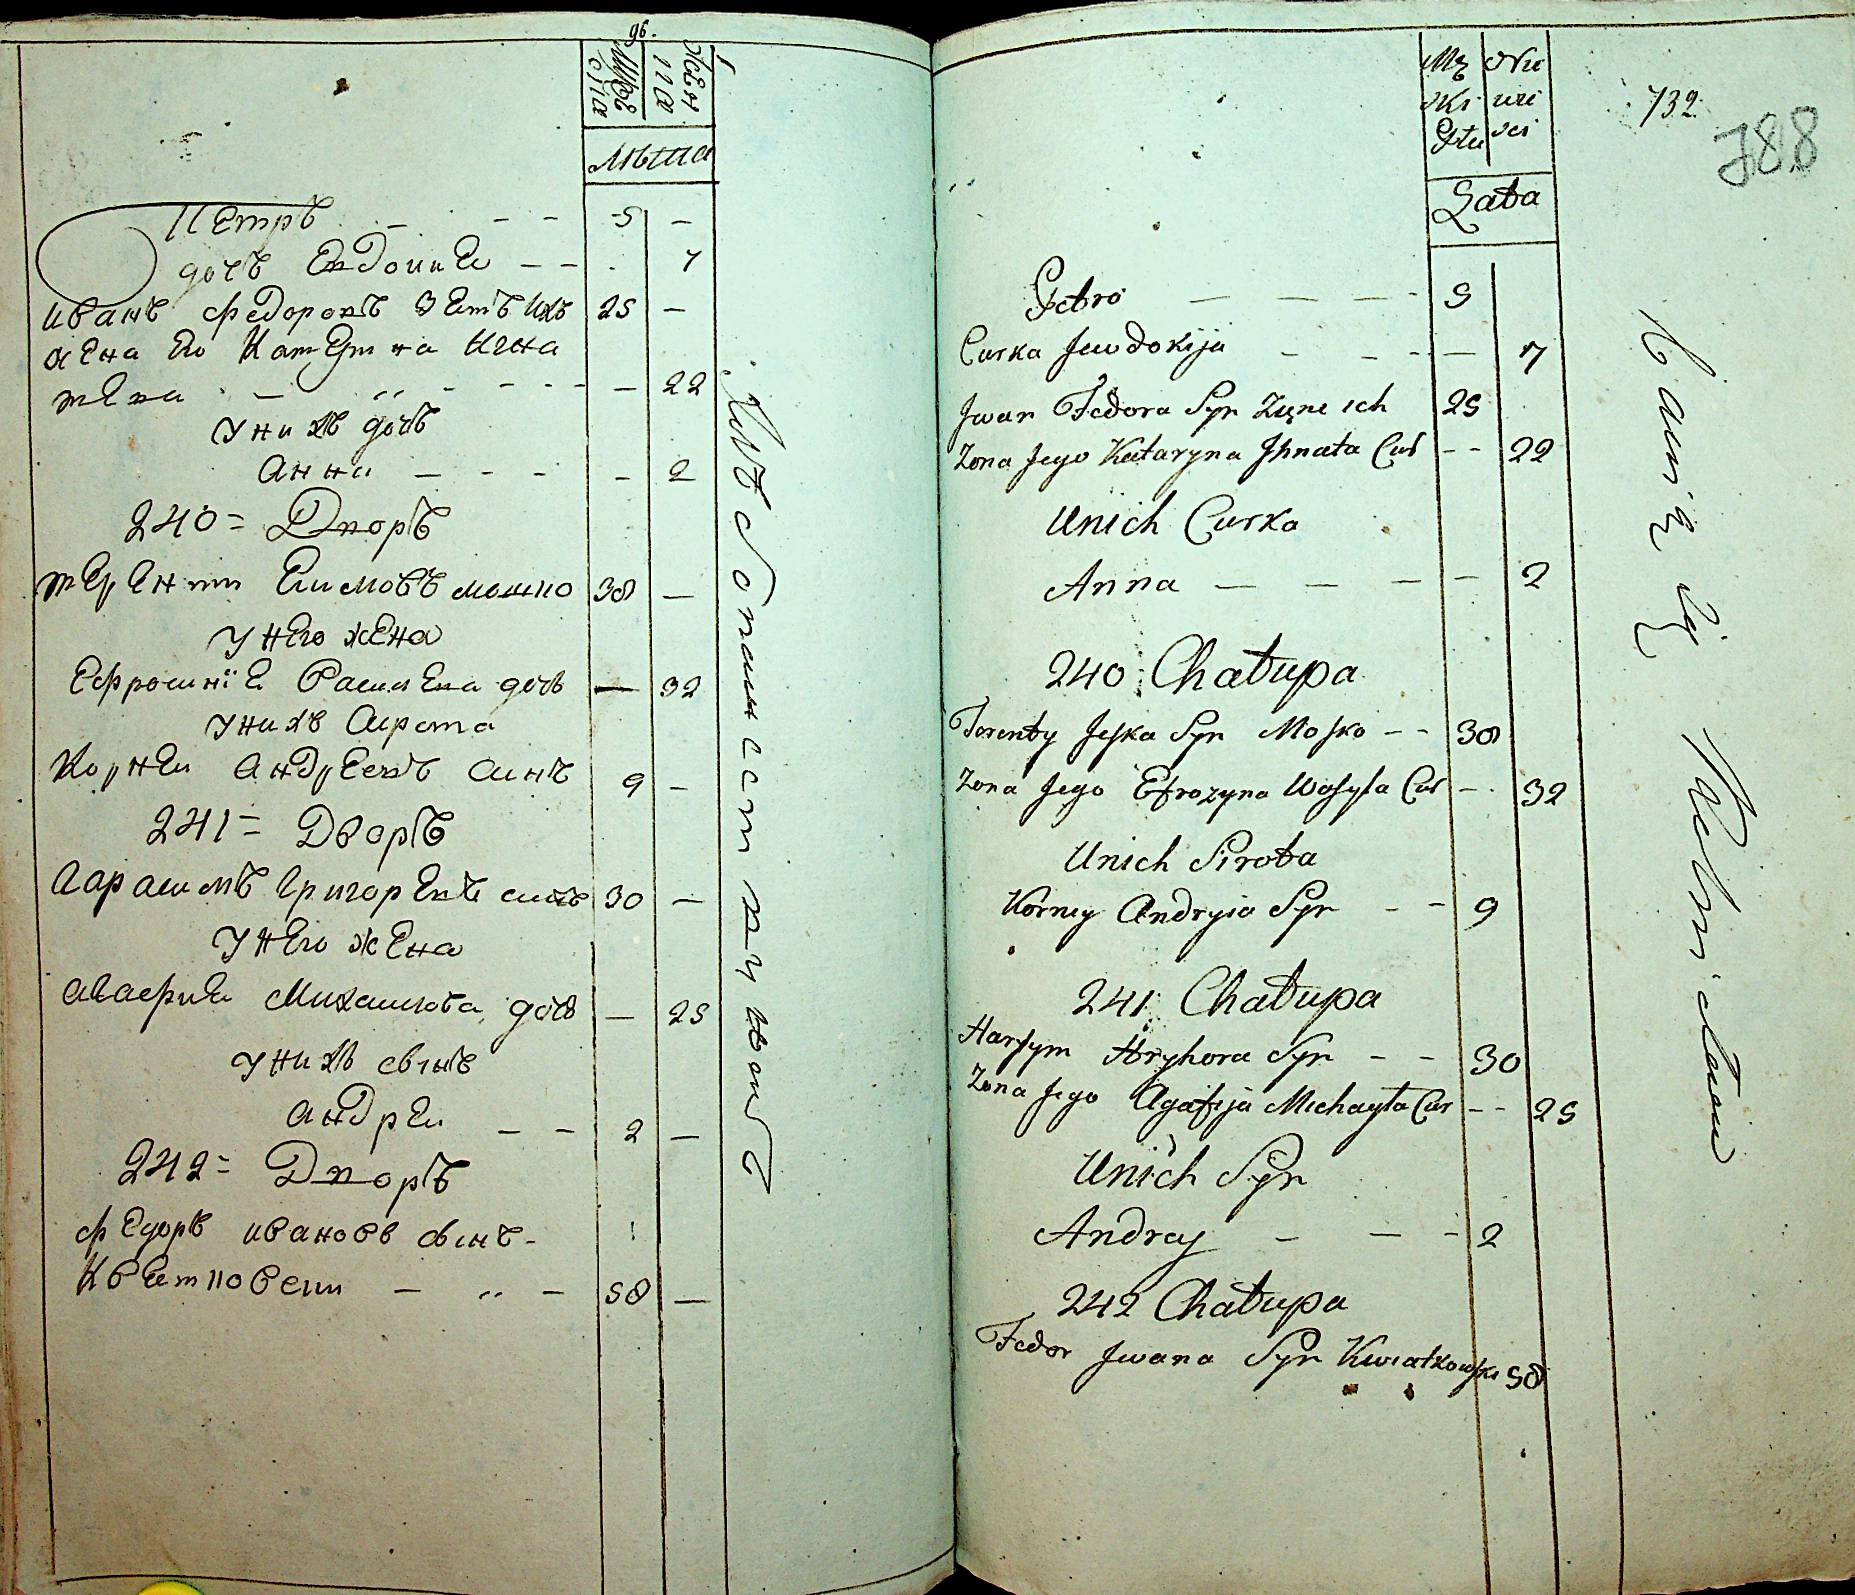 96.
Муже
ска
Жен
ска
Лѣта
Петръ — — — 5 —
дочь Евдокиа — — . 7
иванъ федоровъ зеть ихъ 25 —
жена его Катерина Игна
тева — „ — — — — 22
у нихъ дочь
Анна — — — — 2
240 = Дворъ
терентии Есиповъ мошко 38 —
у него жена
Ефросиніа Василева дочь — 32
у нихъ Сирота
Корнеи андреевъ синъ 9 —
241 = Дворъ
Гарасимъ Григоревъ синъ 30 —
у него жена
агафиа Михаилова дочь — 25
у нихъ сынъ
андреи — — 2 —
242 = Дворъ
федоръ ивановъ сынъ -
Кветковски — „ — 58 —
Mę
ski
Płci
Nie
wie
sci
732.
788
Lata
Petro — — — - 5
Curka Jewdokija — — - — 7
Jwan Fedora Syn Zięnc ich 25
Zona Jego Kataryna Jhnata Cur -- 22
Unich Curka
Anna — — — — 2
240 Chałupa
Terenty Jeska Syn Mosko -- 38
Zona Jego Efrozyna Wasyla Cur — . 32
Unich Sirota
Korney Andryia Syn - - 9
241 Chałupa
Harsym Hryhora Syn - - 30
Zona Jego Agafija Michayła Cur -- 25
Unich Syn
Andrey — — - 2
242 Chałupa
Fedor Jwana Syn Kwiatkowski 58